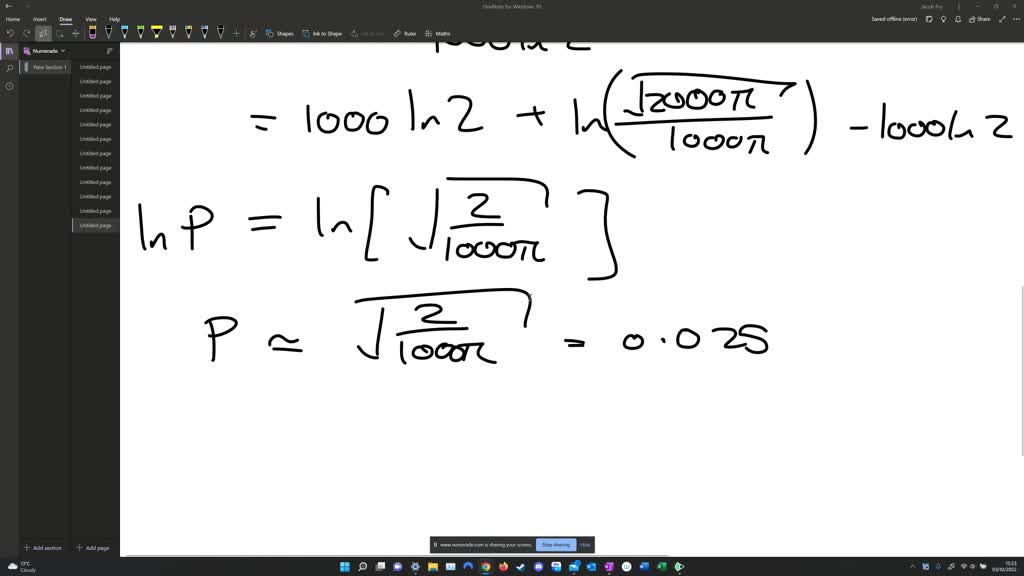 OneNote for Windows 10
Jacob Fry
Home Insert Draw View Help
Saved offline (error) Share
Shapes Ink to Shape Ruler Maths
Numerade
New Section 1
Untitled page
Untitled page
Untitled page
Untitled page
Untitled page
Untitled page
Untitled page
Untitled page
Untitled page
Untitled page
Untitled page
Untitled page
= 1000 ln 2 + ln(√2000π / 1000π) - 1000 ln 2
ln P = ln[√(2/1000π)]
P ≃ √(2/1000π) = 0.025
+ Add section + Add page
www.numerade.com is sharing your screen. Stop sharing Hide
13°C
Cloudy
15:23
03/10/2022